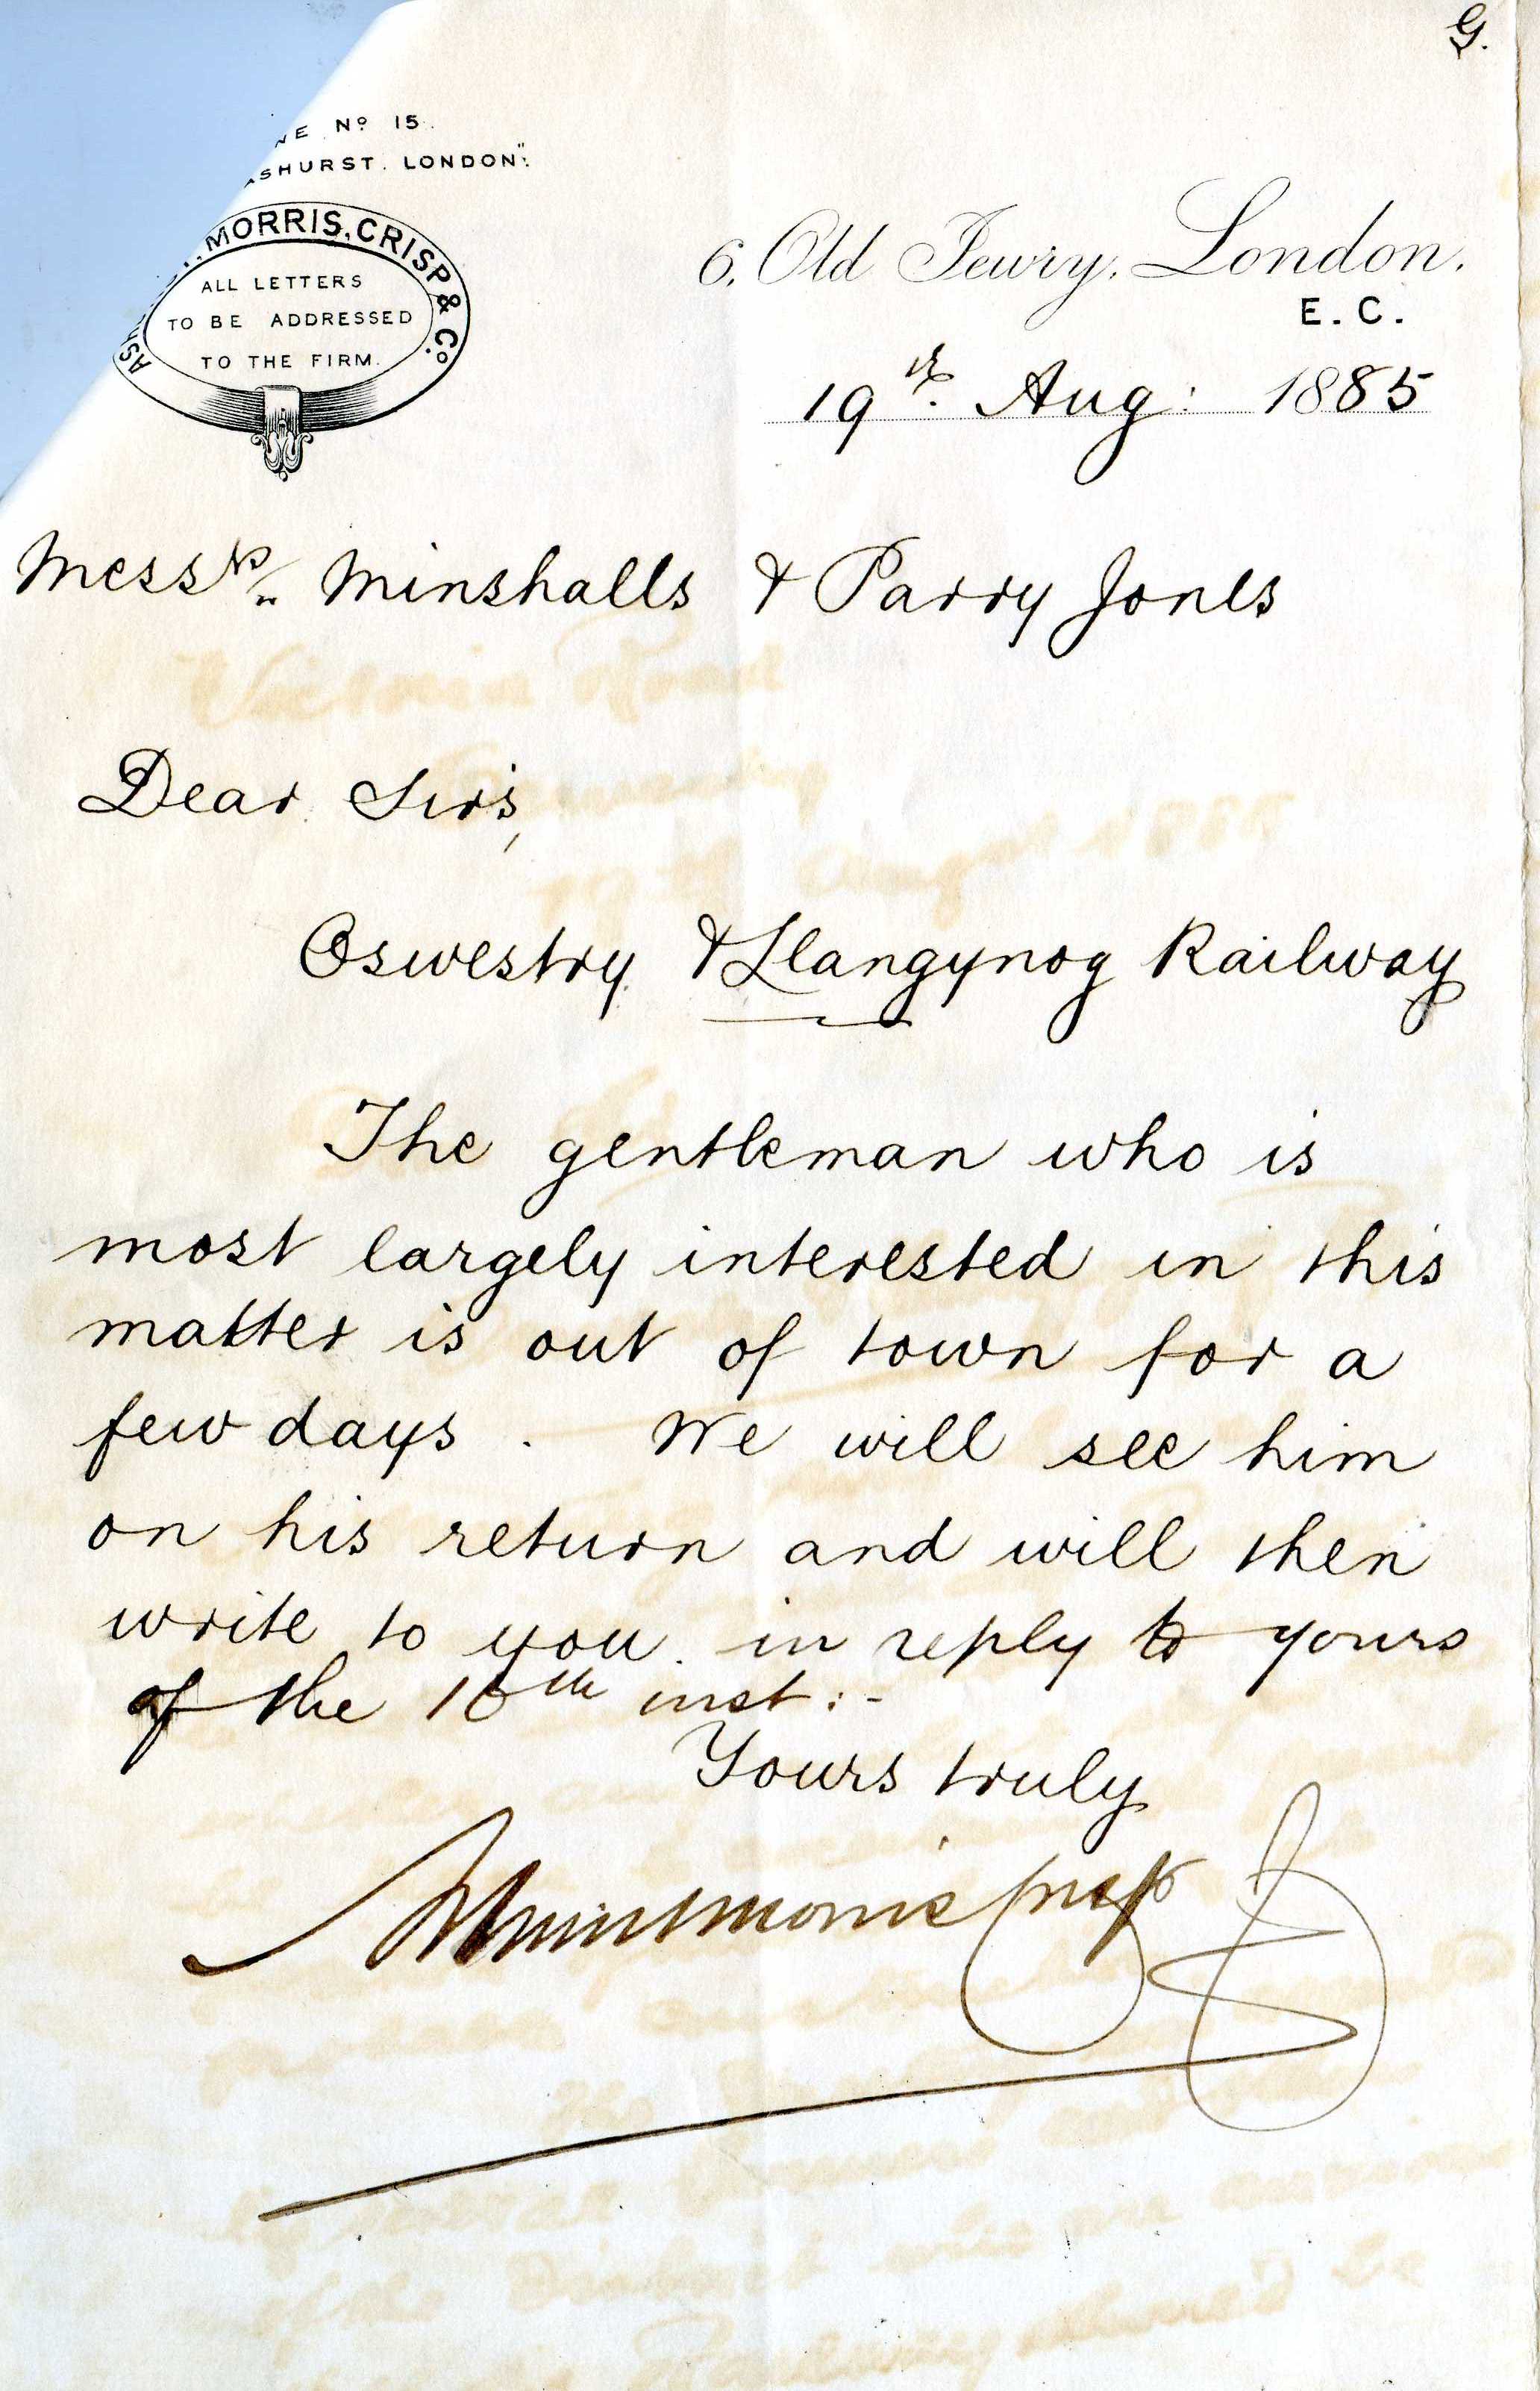 G.
NE Nº 15.
ASHURST. LONDON".
MORRIS, CRISP & Cº
ALL LETTERS
TO BE ADDRESSED
TO THE FIRM.
6, Old Jewry, London.
E. C.
19th. Aug: 1885
Messrs. Minshalls & Parry Jones
Dear Sirs,
Oswestry & Llangynog Railway
The gentleman who is
most largely interested in this
matter is out of town for a
few days. We will see him
on his return and will then
write to you in reply to yours
of the 18th inst:-
Yours truly